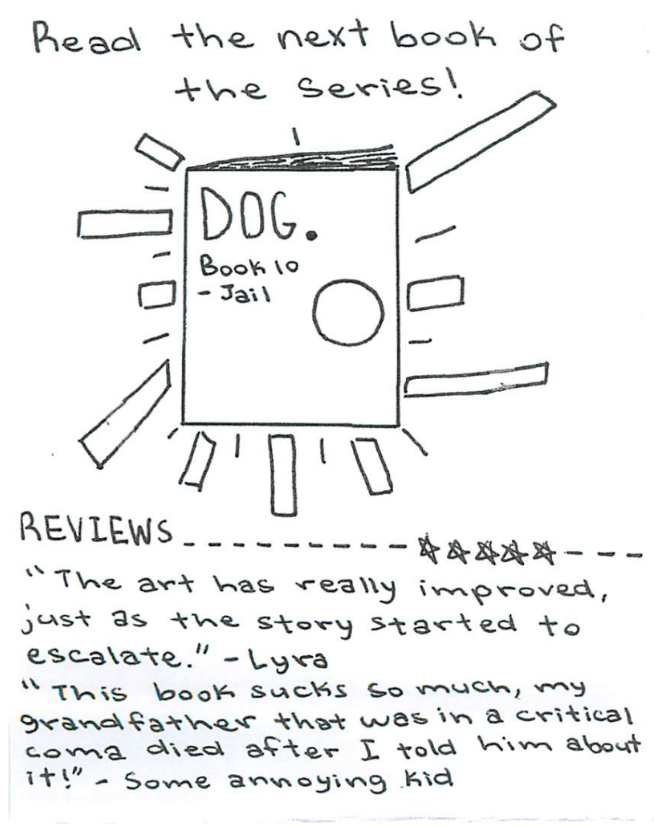 Read the next book of
the series!
DOG.
Book 10
- Jail
REVIEWS----------☆☆☆☆☆---
"The art has really improved,
just as the story started to
escalate." - Lyra
"This book sucks so much, my
grandfather that was in a critical
coma died after I told him about
it!" - Some annoying kid